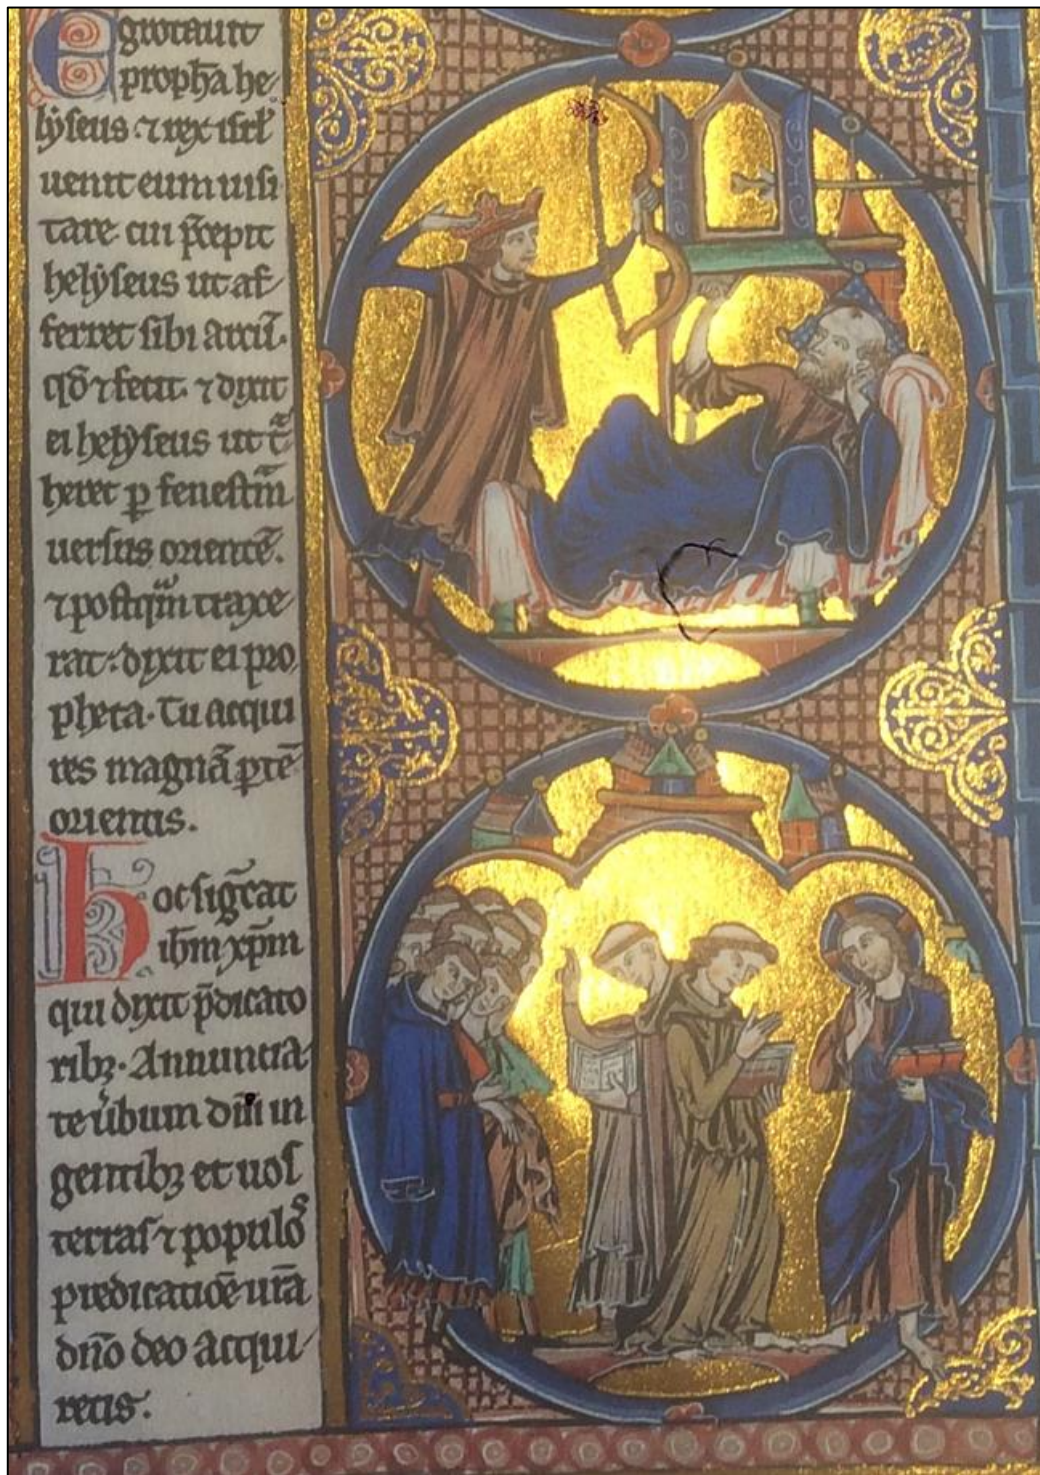 Egrotauit
proph̄a he-
lẏseus ⁊ rex isrl̄
uenit eum uisi
tare cui p̄cepit
helẏseus ut af-
ferret sibi arcū.
qd̄ ⁊ fecit. ⁊ dixit
ei helẏseus ut t̃-
heret ꝑ fenestr̃m
uersus orientē.
⁊ postqͣm traxe-
rat: dixit ei pro
pheta. Tu acqui
res magnā ꝑtē
orientis.
Hoc sigc̄at
ih̄m xp̄m
qui dixit p̄dicato
ribꝫ. Annuncia-
te u̾bum dn̄i in
gentibꝫ et uos
terras ⁊ populos
predicatiōe ur̄a
dn̄o deo acqui-
retis.